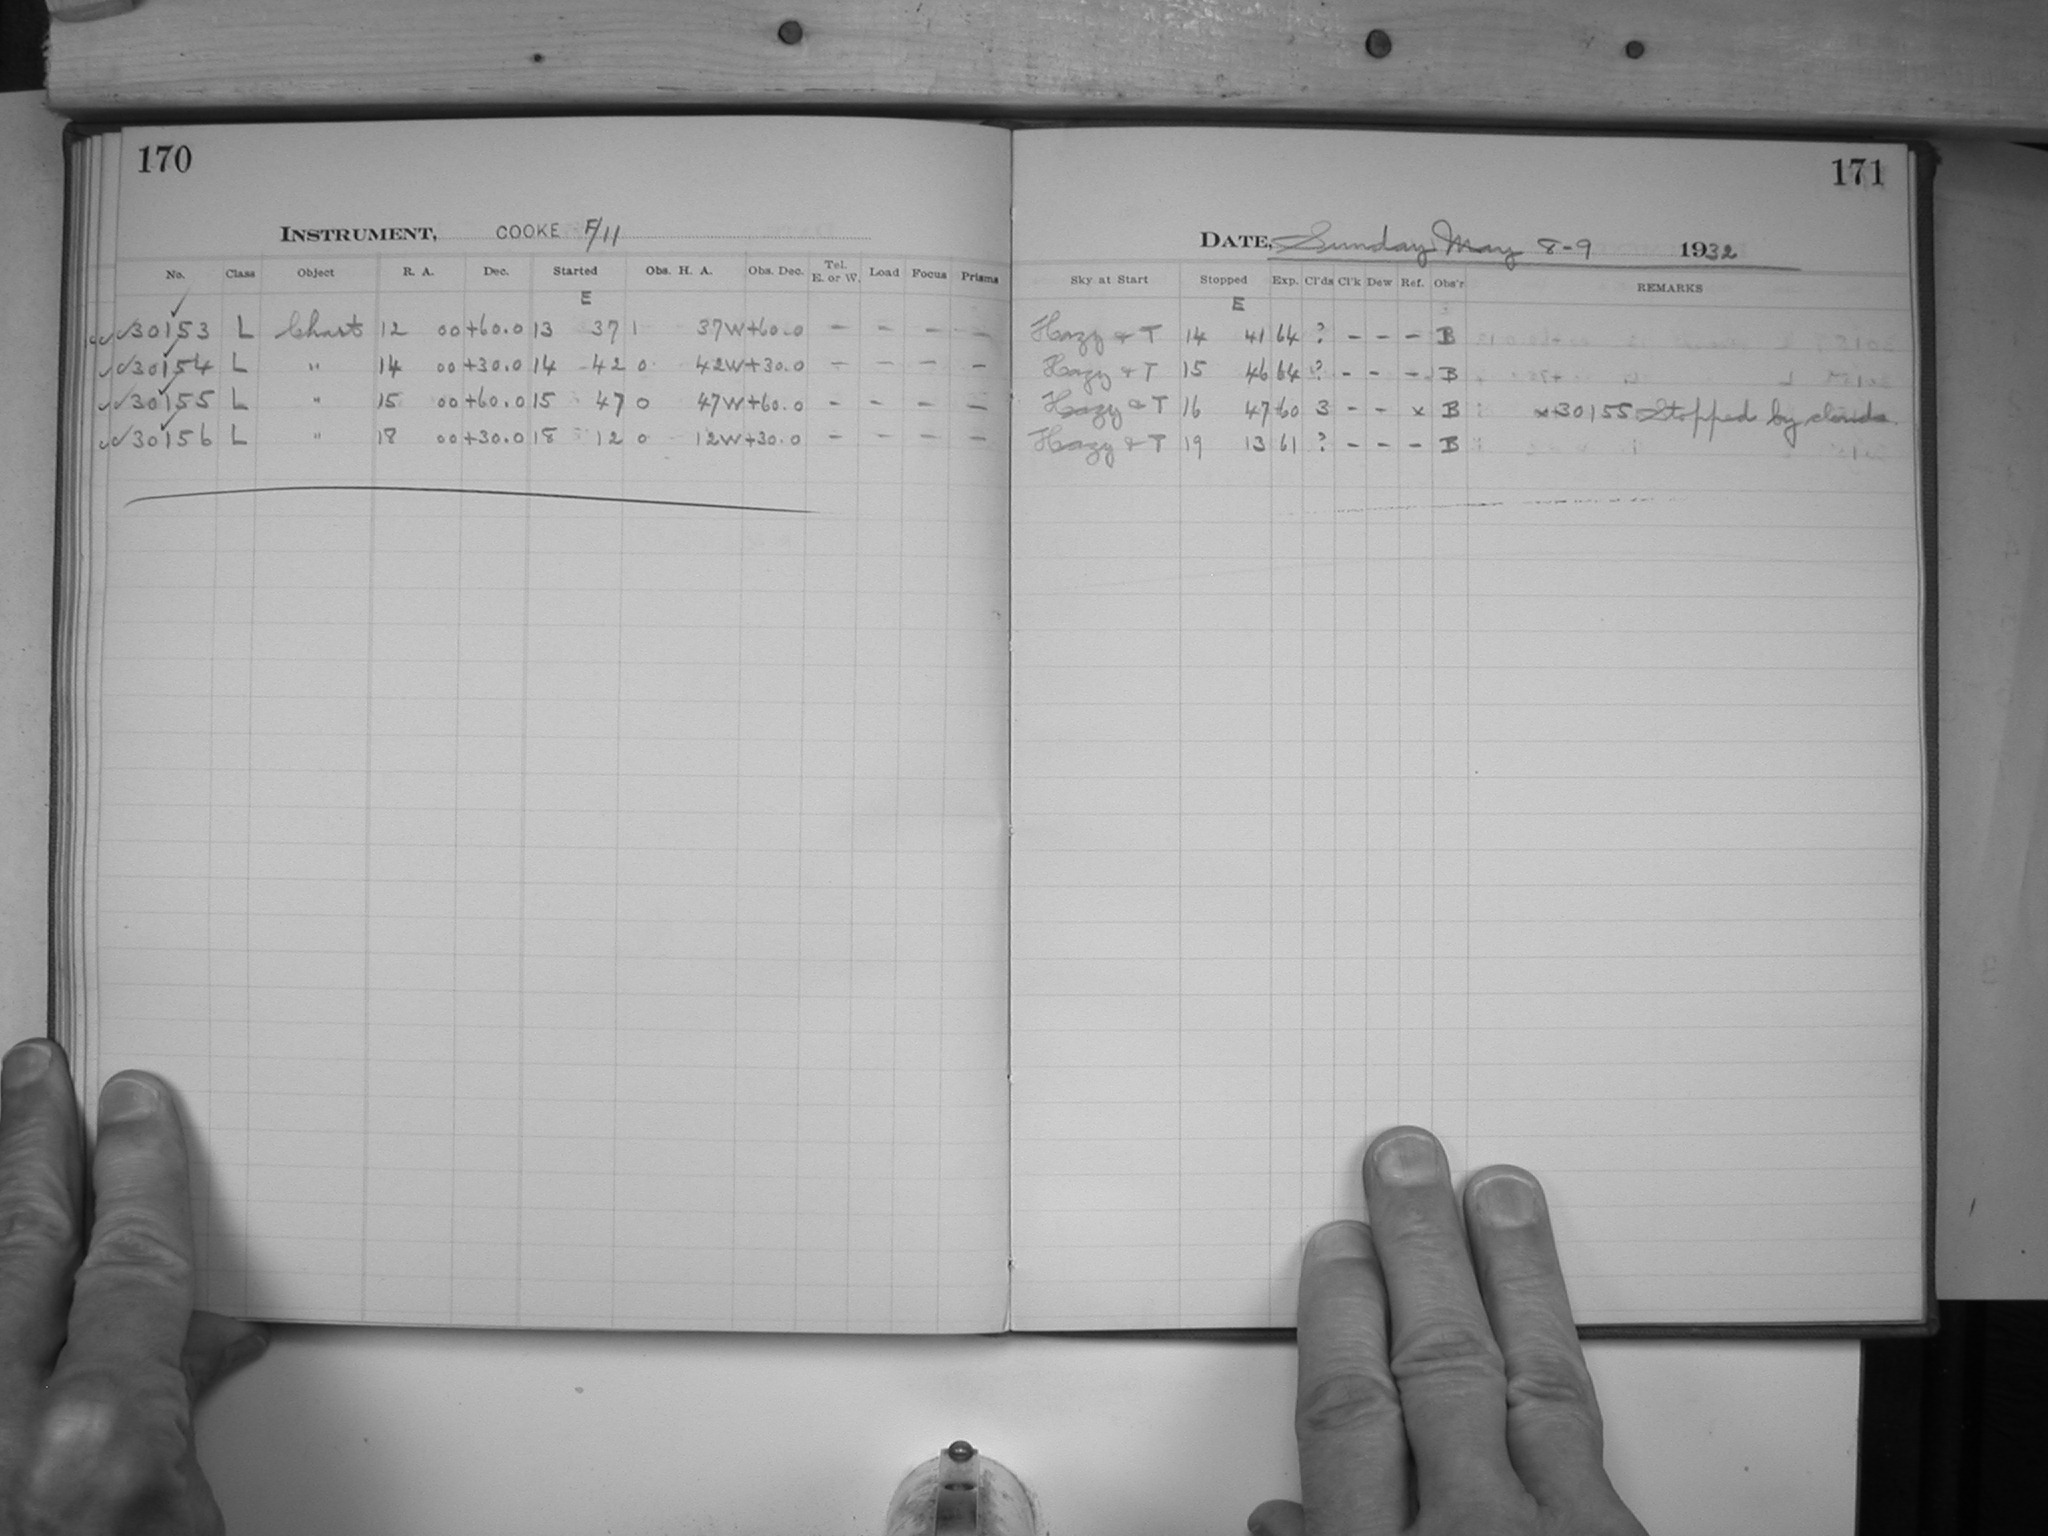 170
INSTRUMENT, COOKE F/11
No. Class Object R. A. Dec. Started Obs. H. A. Obs. Dec. Tel. E. or W. Load Focus Prisms
E
30153 L Chart 12 00 +60.0 13 37 1 37W +60.0 - - - -
30154 L " 14 00 +30.0 14 42 0 42W +30.0 - - - -
30155 L " 15 00 +60.0 15 47 0 47W +60.0 - - - -
30156 L " 18 00 +30.0 18 12 0 12W +30.0 - - - -
171
DATE, Sunday May 8-9 1932
Sky at Start Stopped Exp. Cl'ds Cl'k Dew Ref. Obs'r REMARKS
E
Hazy & T 14 41 64 ? - - - B
Hazy & T 15 46 64 ? - - - B
Hazy & T 16 47 60 3 - - x B x30155 Stopped by clouds.
Hazy & T 19 13 61 ? - - - B